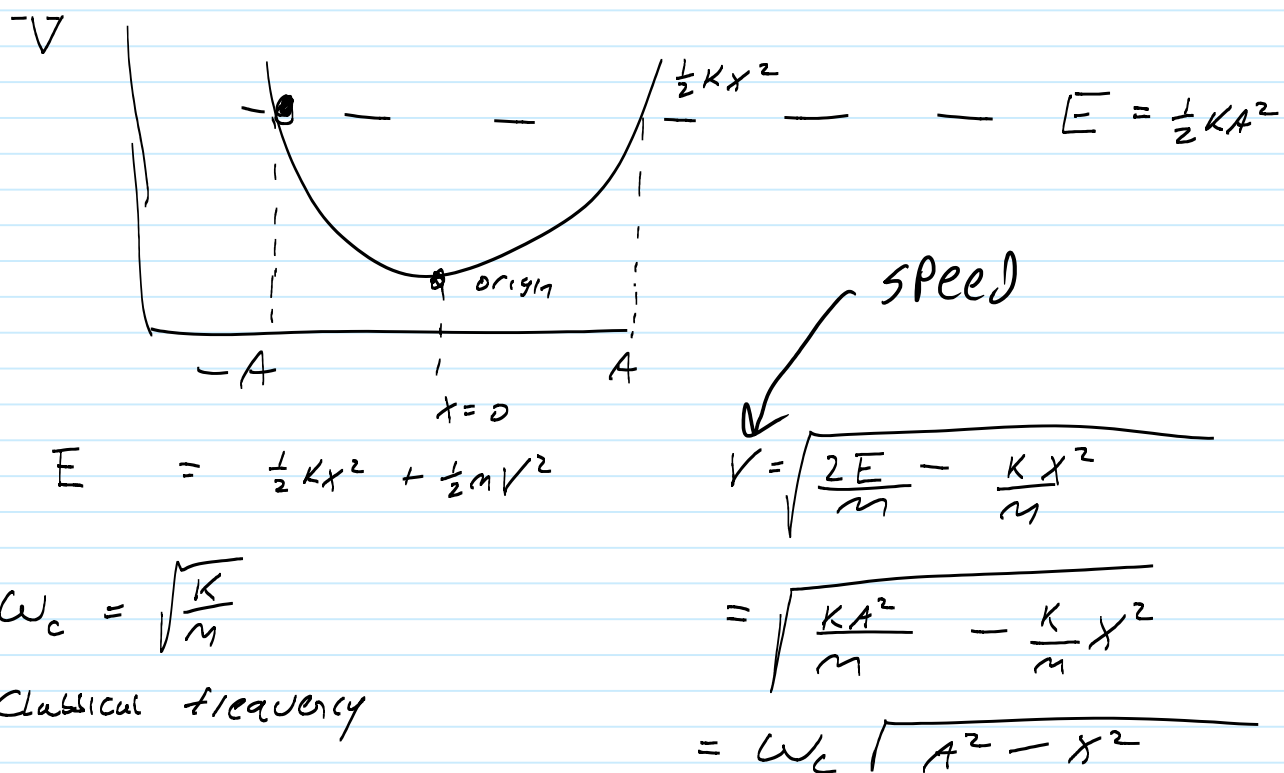 V
½ K X²
E = ½ K A²
origin
SPEED
-A
A
X = 0
E = ½ K X² + ½ m V²
V = √(2E/m − K X²/m)
ω_c = √(K/m)
= √(K A²/m − K/m X²)
Classical frequency
= ω_c √(A² − X²)